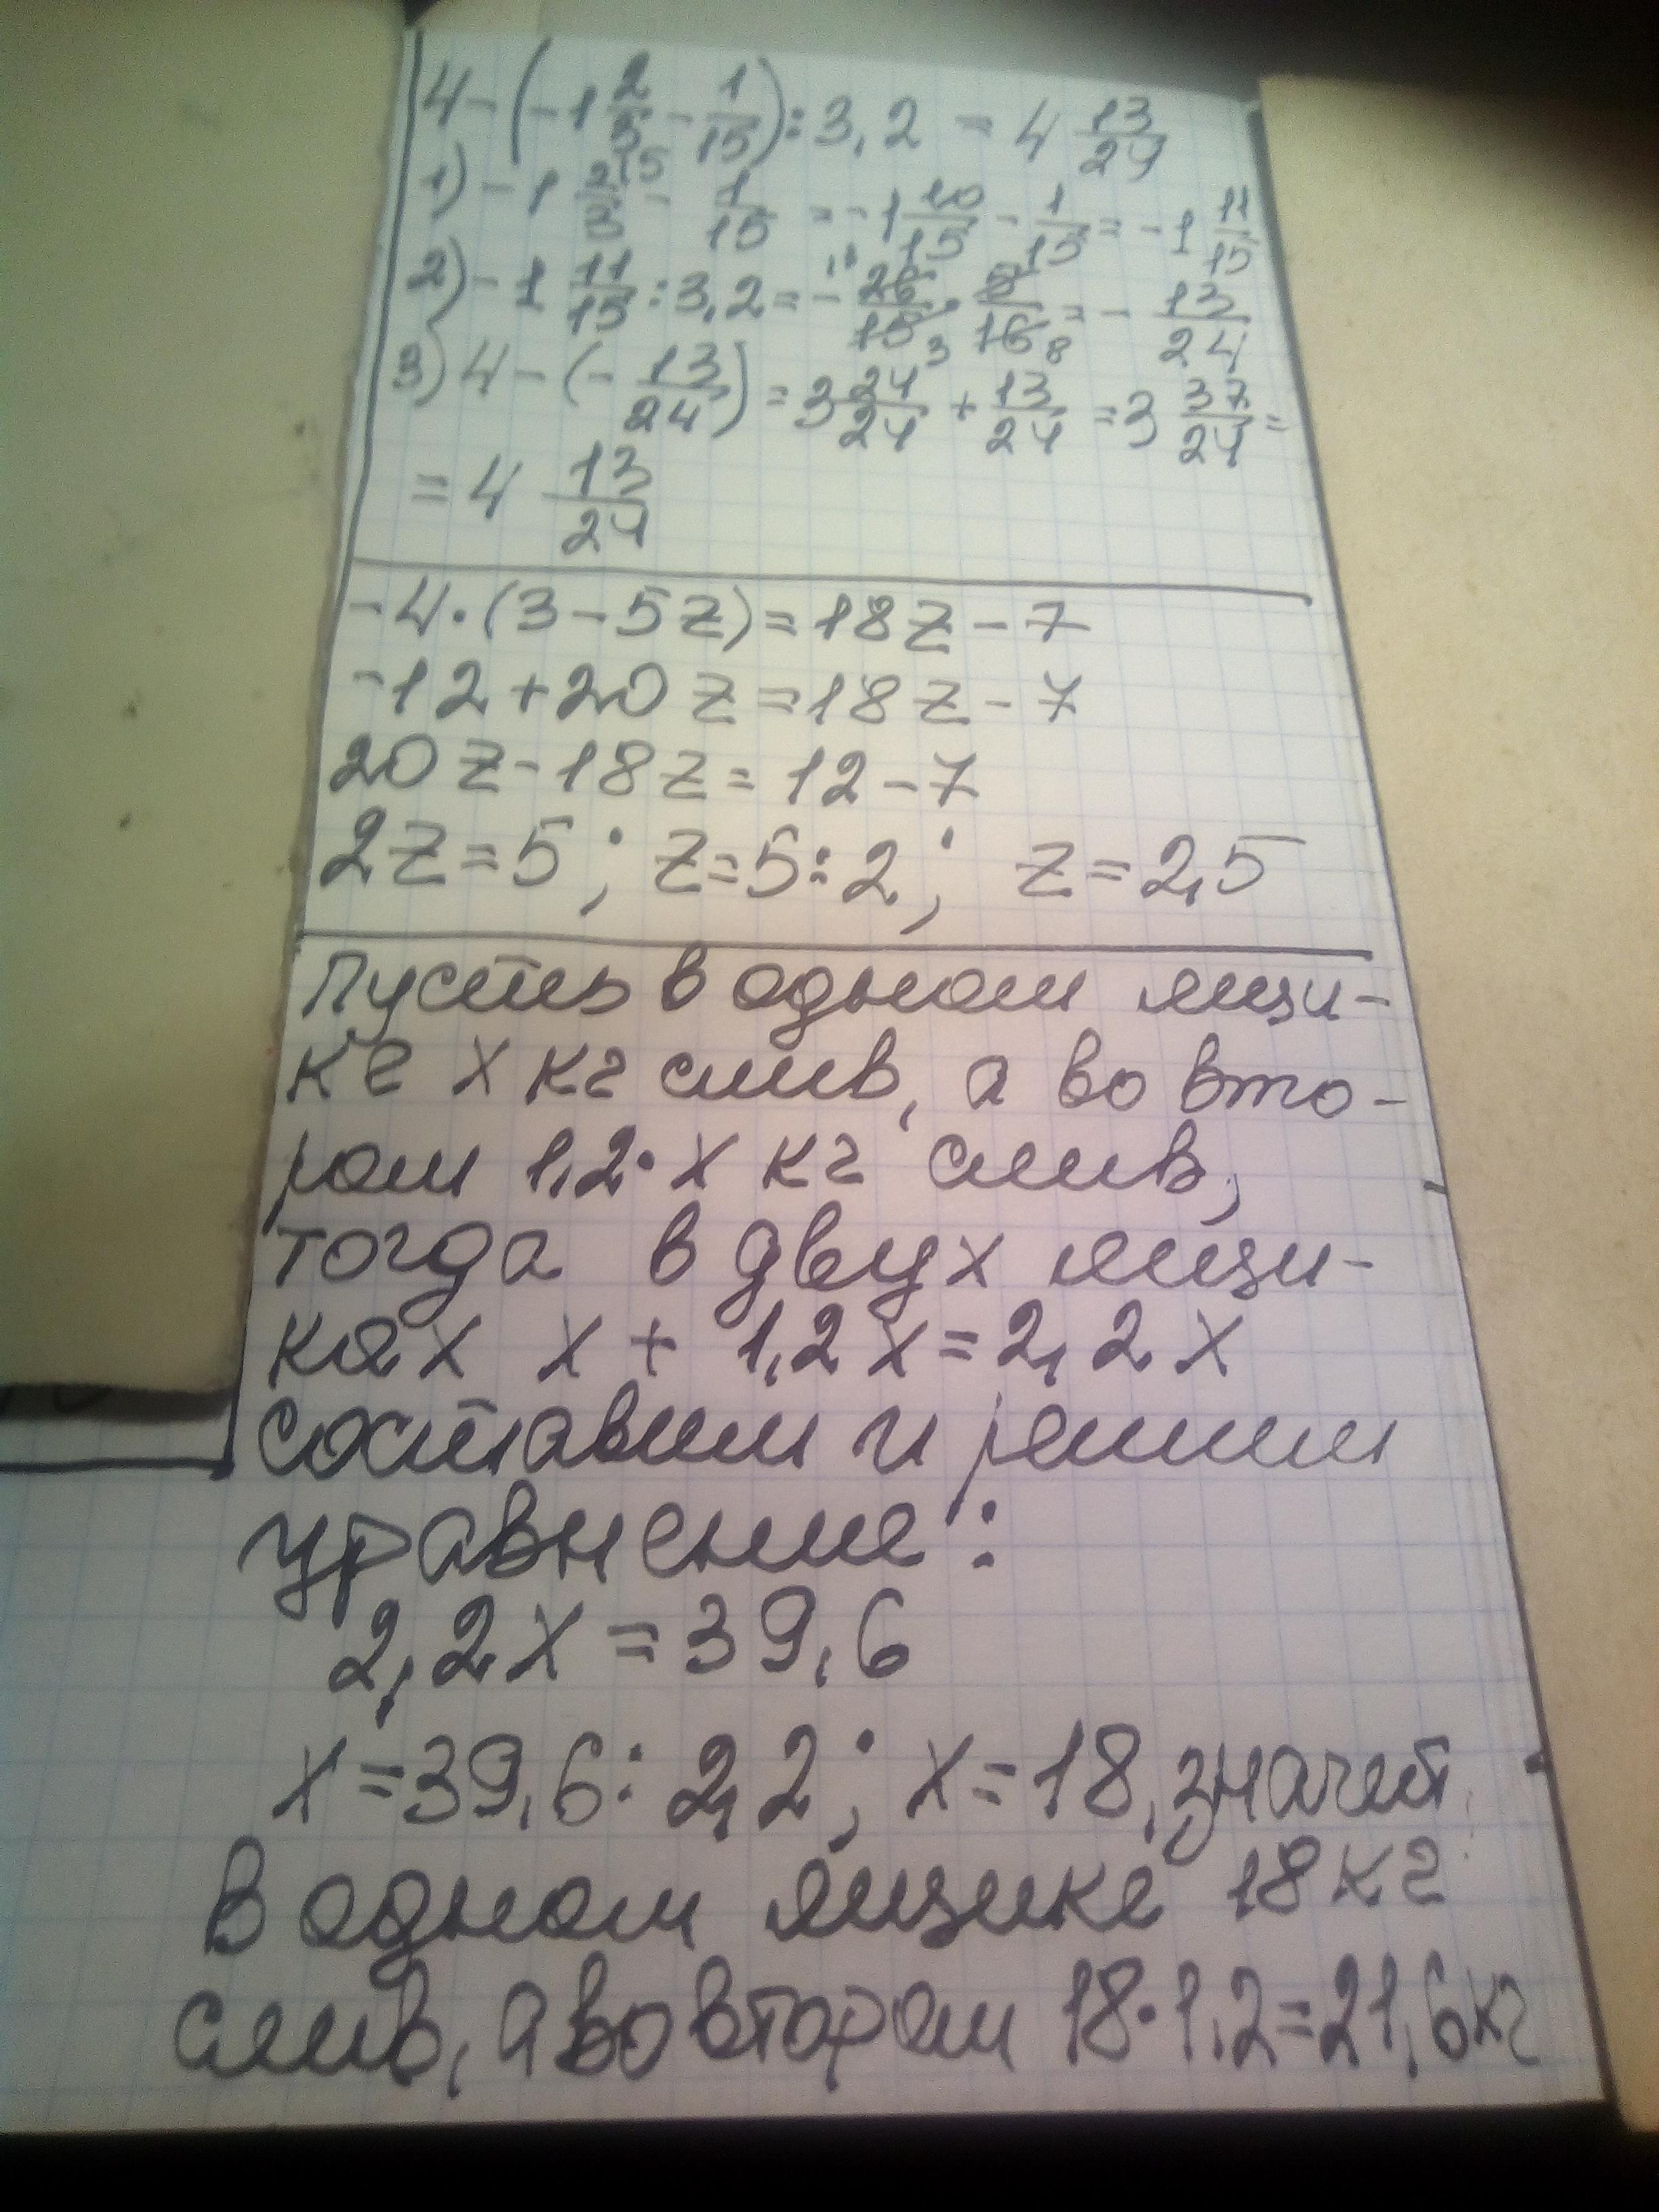 4 - (-1 2/3 - 1/15) : 3,2 = 4 13/24
1) -1 2/3 - 1/15 = -1 10/15 - 1/15 = -1 11/15
2) -1 11/15 : 3,2 = - 26/15 · 5/16 = - 13/24
3) 4 - (- 13/24) = 3 24/24 + 13/24 = 3 37/24 =
= 4 13/24
-4·(3-5z)=18z-7
-12+20z=18z-7
20z-18z=12-7
2z=5; z=5:2; z=2,5
Пусть в одном ящи-
ке x кг слив, а во вто-
ром 1,2·x кг слив,
тогда в двух ящи-
ках x + 1,2x=2,2x
составим и решим
уравнение:
2,2x=39,6
x=39,6:2,2; x=18, значит
в одном ящике 18кг
слив, а во втором 18·1,2=21,6кг